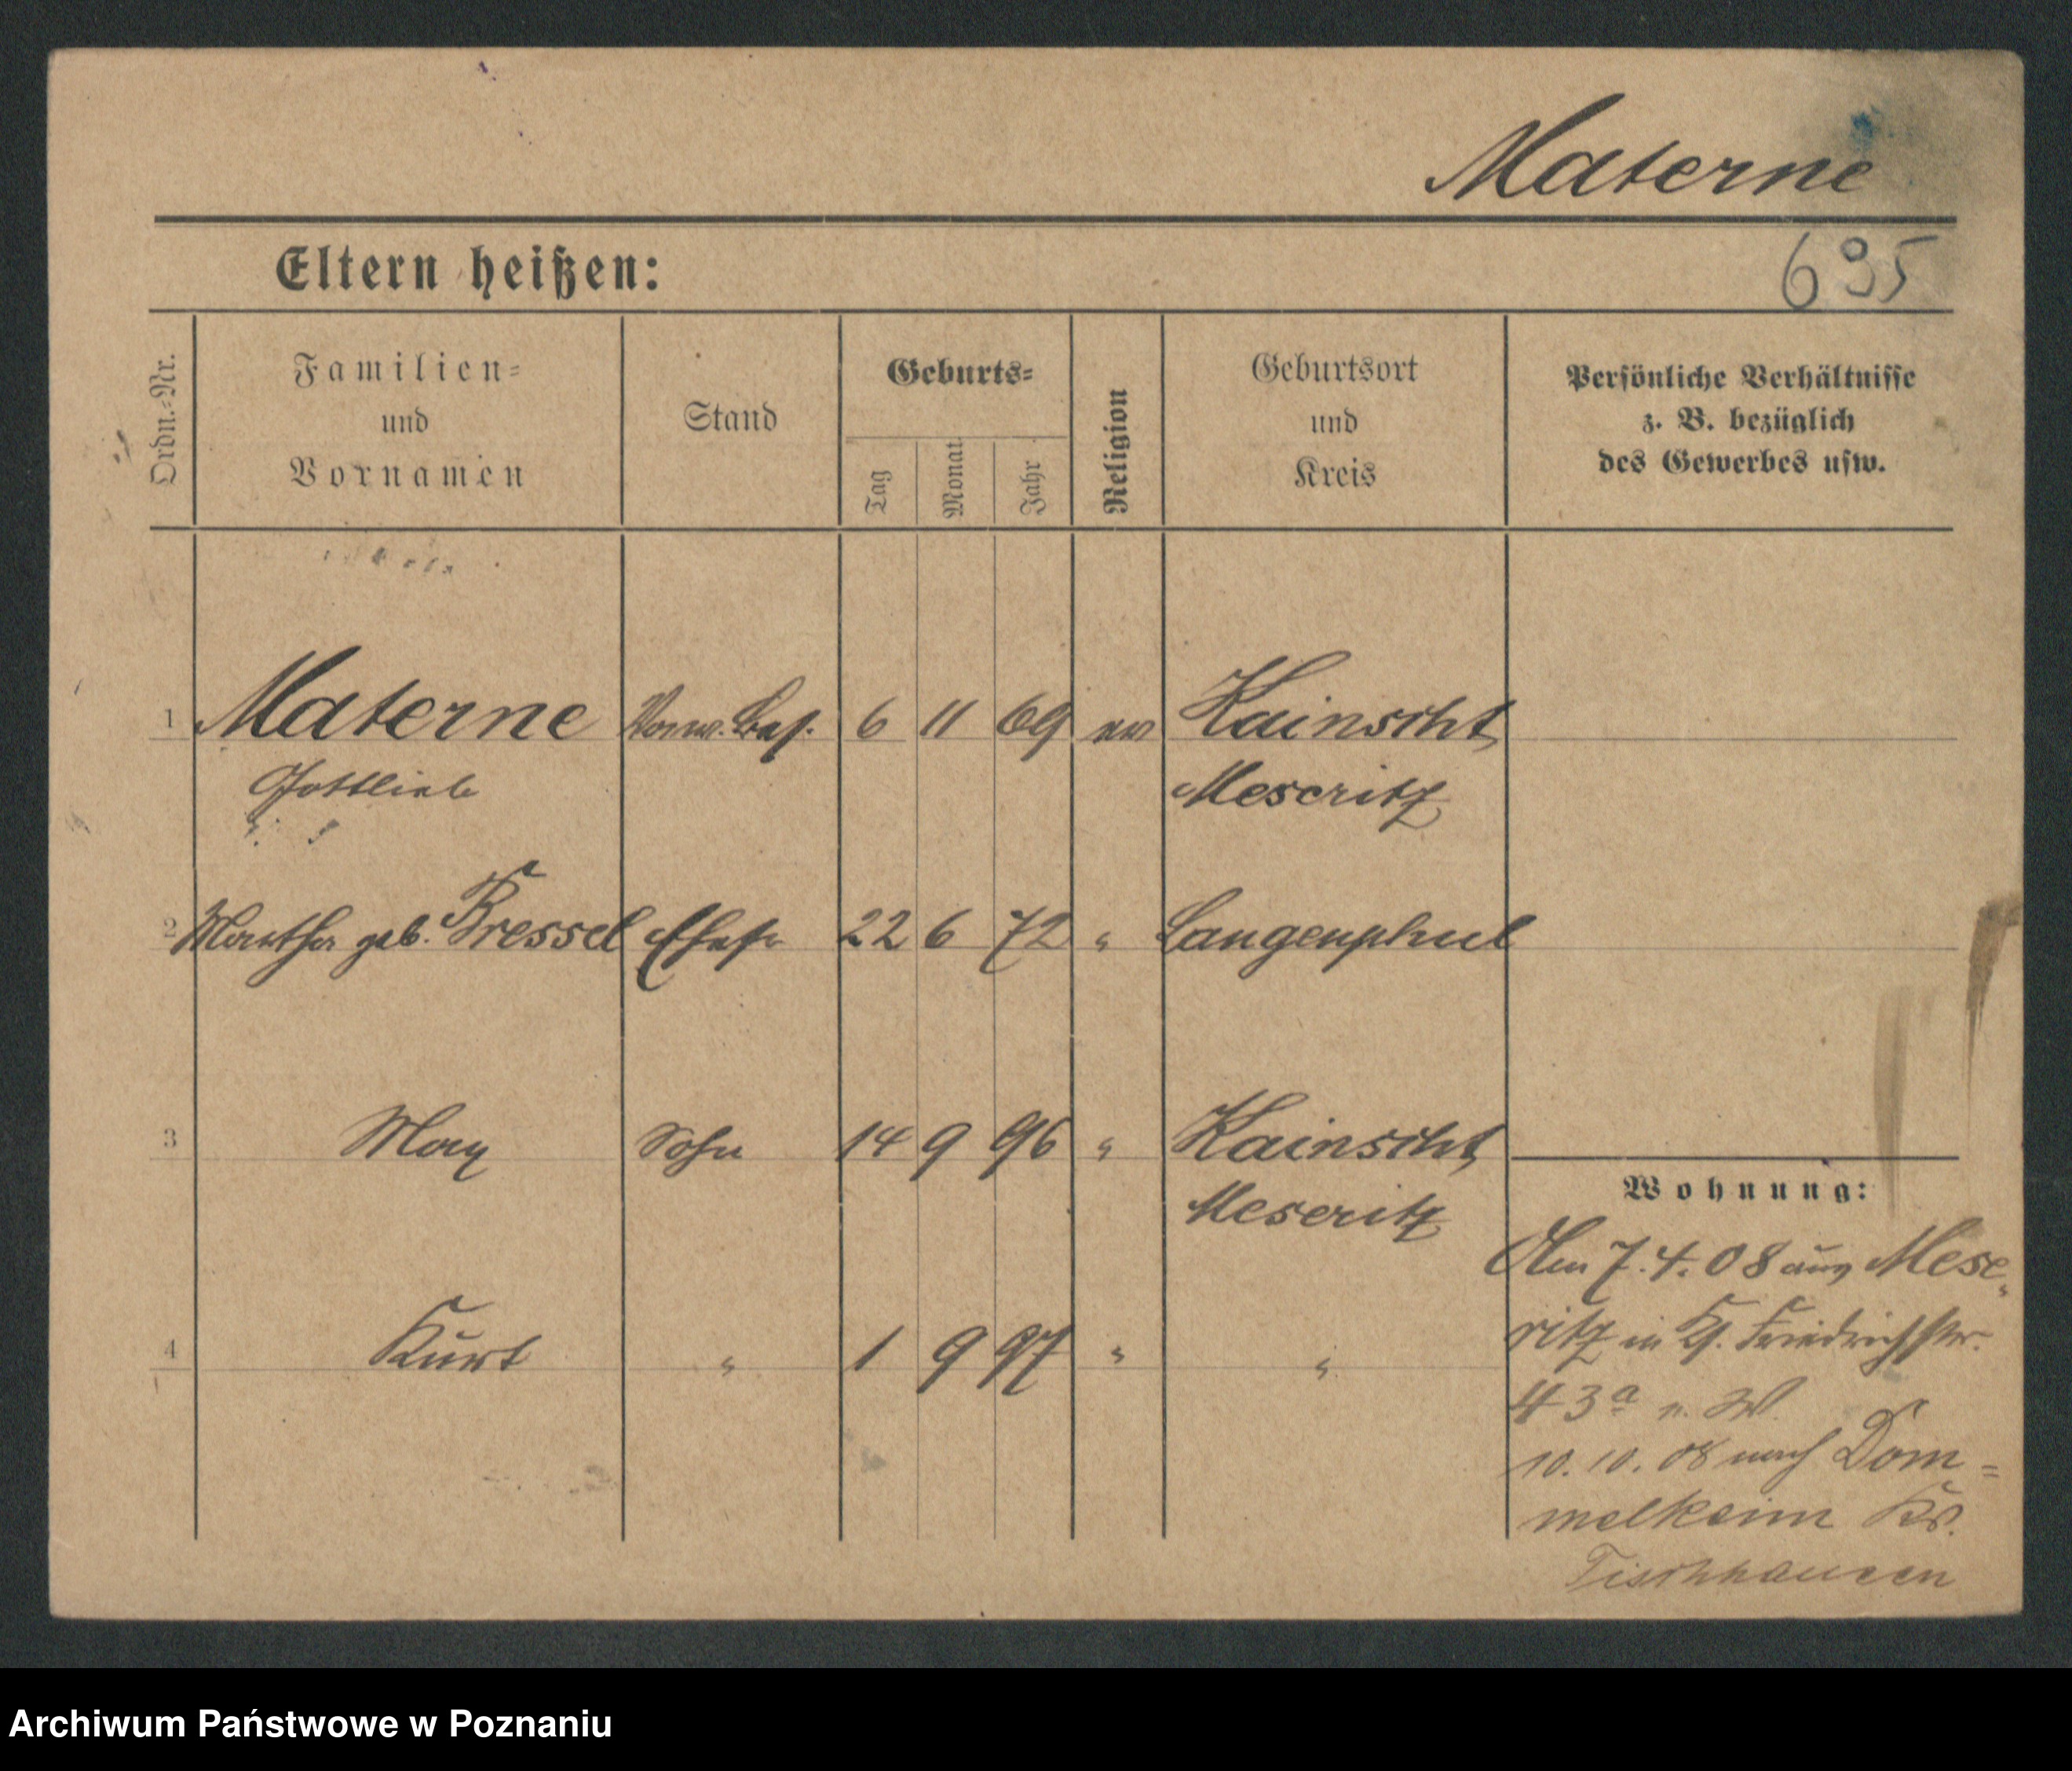 Materne
695
Eltern heißen:
Ordn.-Nr.
Familien-
und
Vornamen
Stand
Geburts-
Tag
Monat
Jahr
Religion
Geburtsort
und
Kreis
Persönliche Verhältnisse
z. B. bezüglich
des Gewerbes usw.
1 Materne 6 11 69 ev Kainscht
Gottlieb Meseritz
2 Martha geb. Bressel Ehefr 22 6 72 " Langenpfuhl
3 Max Sohn 14 9 96 " Kainscht
Meseritz
4 Kurt " 1 9 97 " "
Wohnung:
Am 7.4.08 aus Mese-
ritz in Friedrichstr.
43a n. W.
10. 10. 08 nach Dom=
melkeim Kr.
Fischhausen
Archiwum Państwowe w Poznaniu